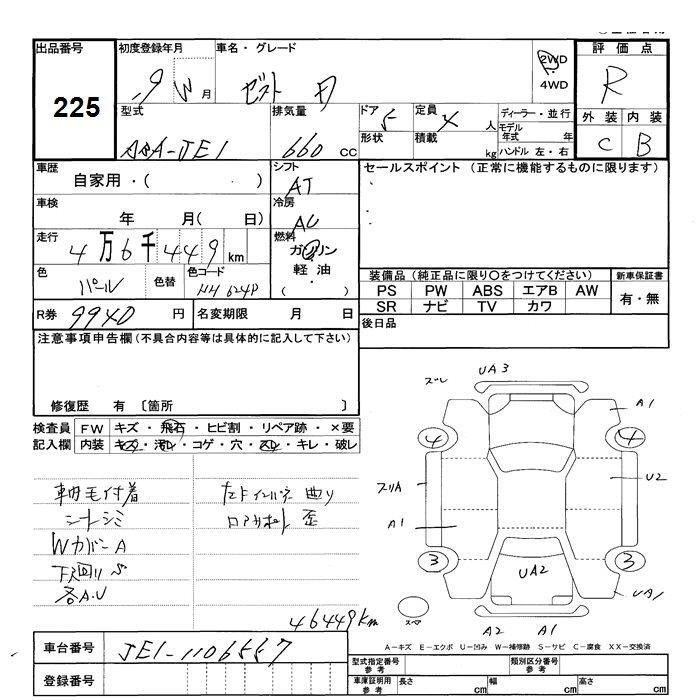 出品番号
225
初度登録年月
19 W 月
車名・グレード
ゼスト D
2WD
4WD
評価点
R
外装 内装
C B
型式
ABA-JE1
排気量
660 CC
ドア 5
形状
定員 4 人
積載 kg
ディーラー・並行
モデル年式 年
ハンドル 左・右
車歴
自家用・( )
シフト
AT
セールスポイント (正常に機能するものに限ります)
車検
年 月( 日)
冷房
AC
走行
4万6千449km
燃料
ガソリン
軽油
( ・ )
色
パール
色替
色コード
NH624P
装備品 (純正品に限り○をつけてください)
新車保証書
PS PW ABS エアB AW
SR ナビ TV カワ
有・無
R券 9940 円
名変期限 月 日
後日品
注意事項申告欄 (不具合内容等は具体的に記入して下さい)
修復歴 有 〔箇所 〕
検査員記入欄
FW キズ・飛石・ヒビ割・リペア跡・×要
内装 キズ・汚レ・コゲ・穴・スレ・キレ・破レ
車内毛付着
シートシミ
Wカバー A
下廻りS
各A.U
右Fインパネ曲り
ロアサポート歪
46449km
ズレ
UA3
A1
4
4
スリA
U2
A1
3
3
UA2
UA1
スペア
A2 A1
A-キズ E-エクボ U-凹み W-補修跡 S-サビ C-腐食 XX-交換済
車台番号
JE1-1106557
登録番号
型式指定番号
参考
類別区分番号
参考
車庫証明用
参考
長さ cm
幅 cm
高さ cm